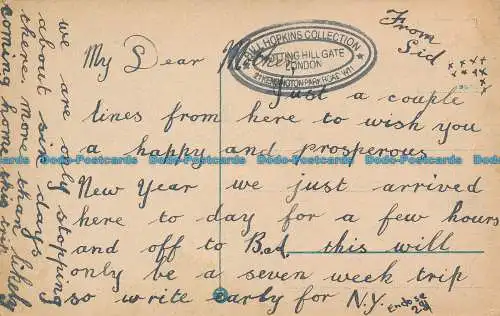 From
Sid
x x x x
x x x x
x x x
My Dear Mother
BILL HOPKINS COLLECTION
NOTTING HILL GATE
LONDON
KENSINGTON PARK ROAD W11
Just a couple
lines from here to wish you
a happy and prosperous
New Year we just arrived
here to day for a few hours
and off to Bad, this will
only be a seven week trip
so write early for N.Y.
we are only stopping
about six days
there more than likely
coming home this
Do-Postcards Do-Postcards Do-Postcards Do-Postcards Do-Postcards Do-Postcards